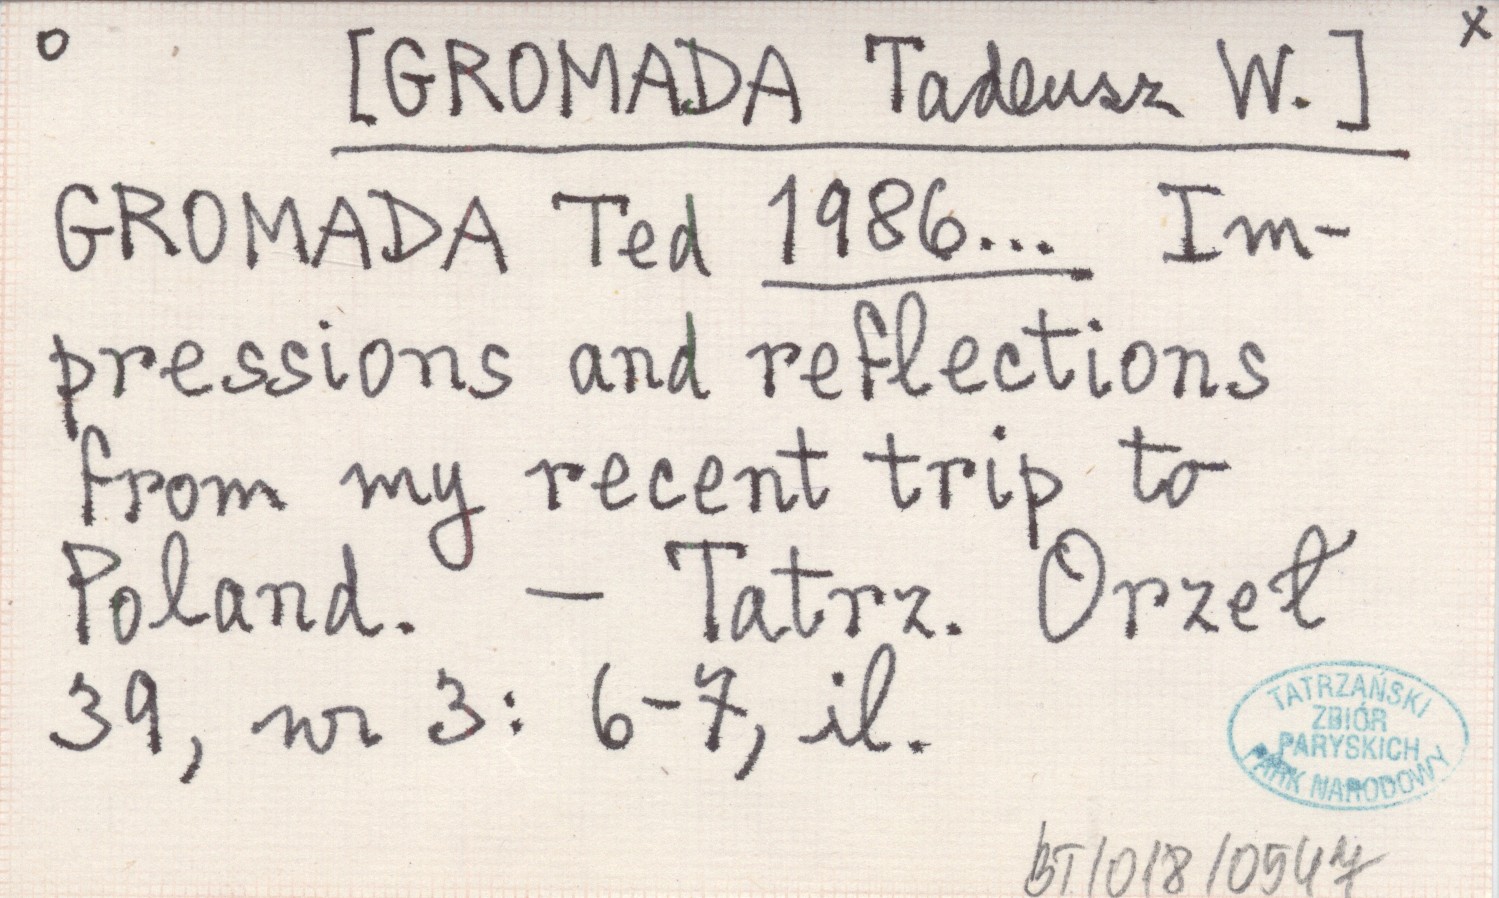 o [GROMADA Tadeusz W.] x
GROMADA Ted 1986... Im-
pressions and reflections
from my recent trip to
Poland. — Tatrz. Orzeł
39, nr 3: 6-7, il.
TATRZAŃSKI
ZBIÓR
PARYSKICH
PARK NARODOWY
BT/018/0547